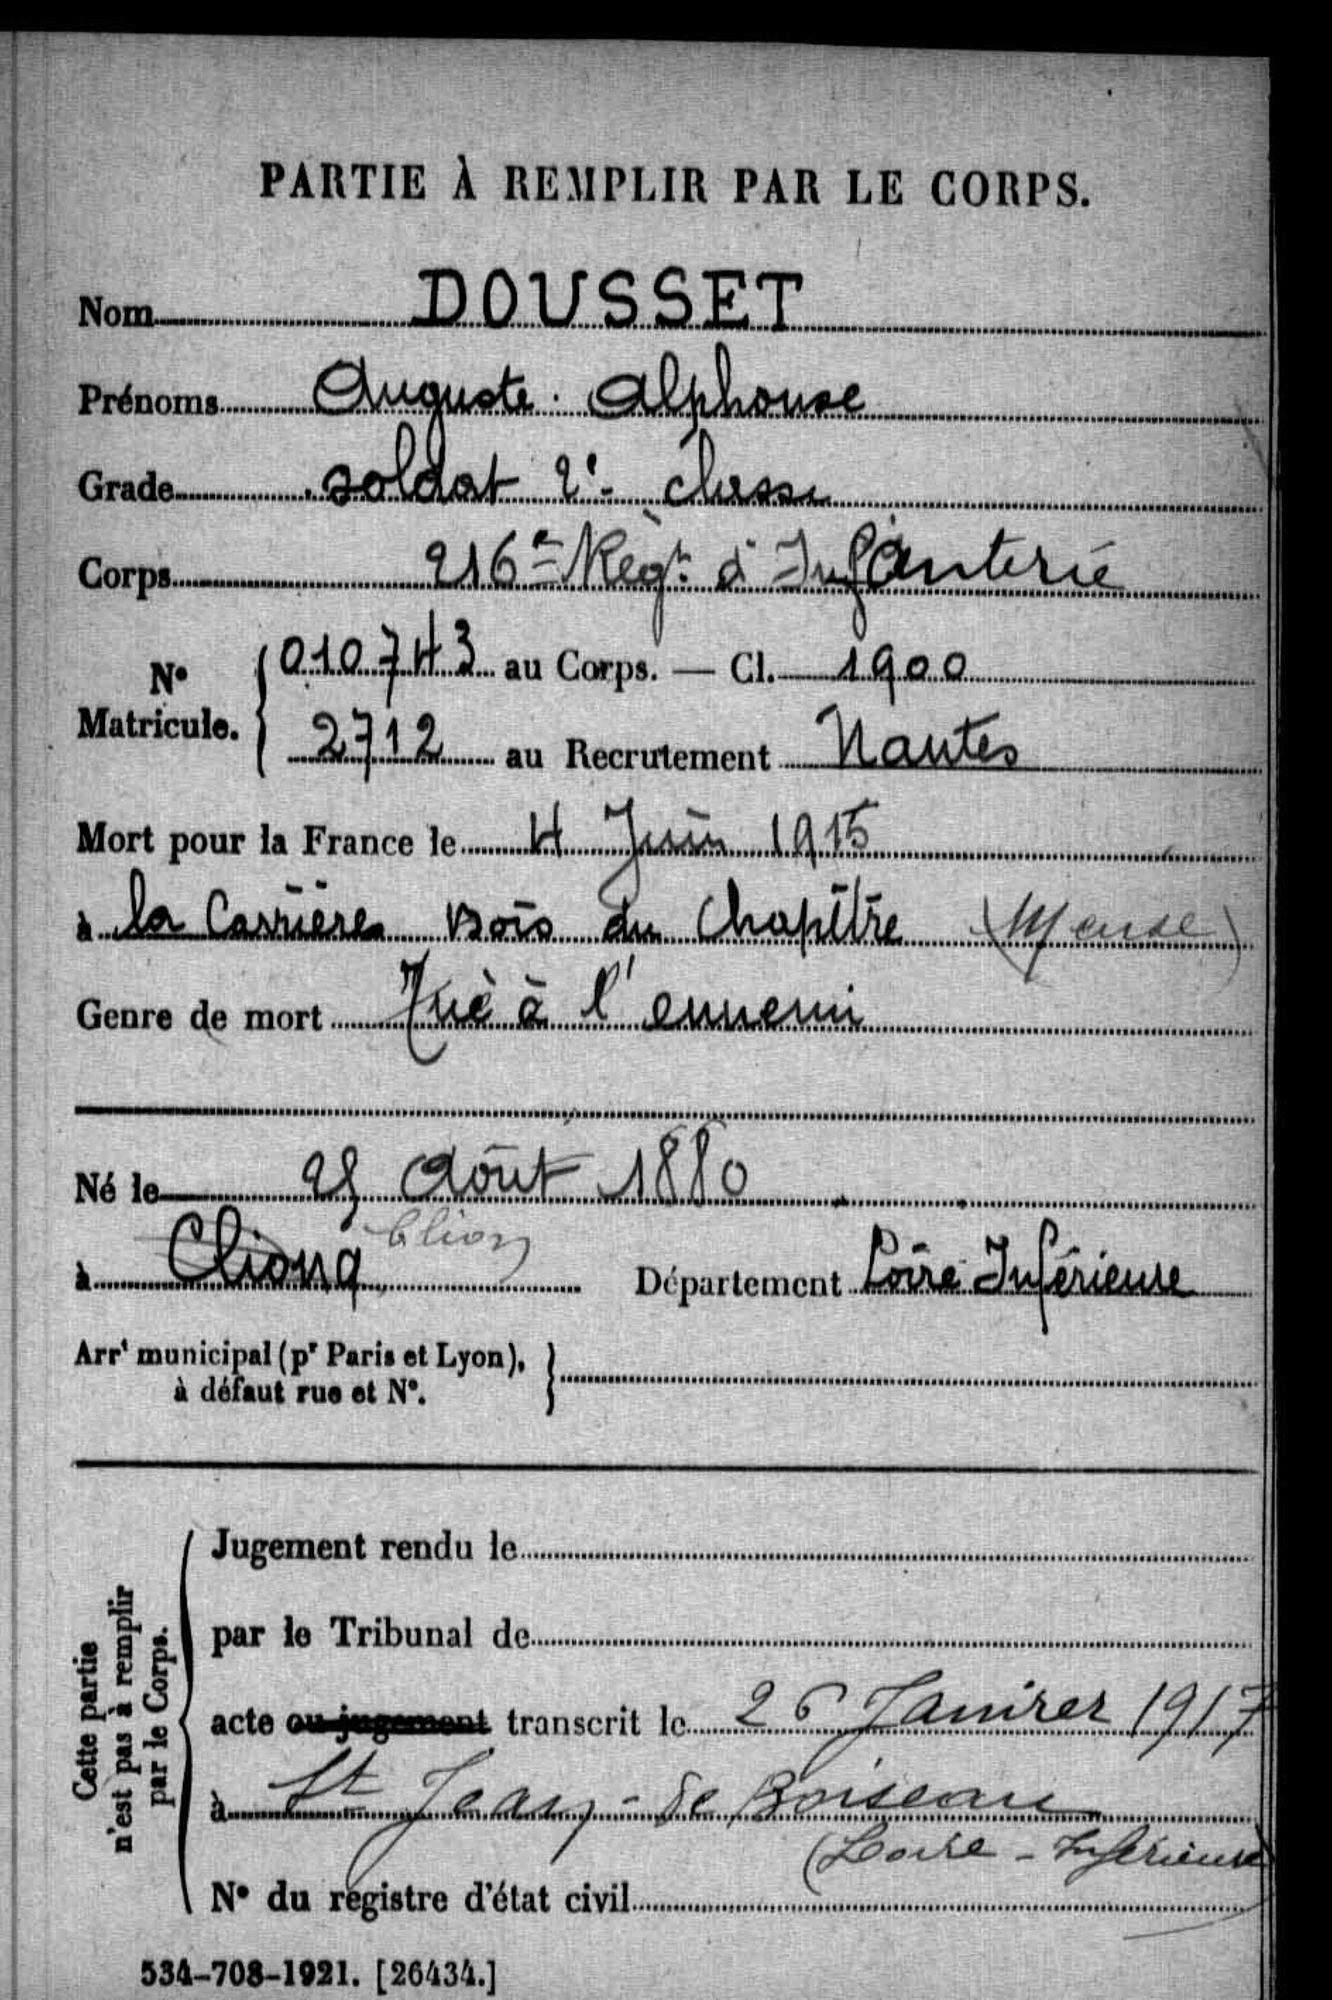 PARTIE À REMPLIR PAR LE CORPS.
Nom DOUSSET
Prénoms Auguste. Alphonse
Grade soldat 2e classe
Corps 216e Régt d'Infanterie
No Matricule. 010743 au Corps. — Cl. 1900
2712 au Recrutement Nantes
Mort pour la France le 4 Juin 1915
à la Carrière Bois du Chapître (Meuse)
Genre de mort Tué à l'ennemi
Né le 25 Août 1880
à Cliong Clion Département Loire Inférieure
Arrt municipal (pr Paris et Lyon),
à défaut rue et No.
Cette partie
n'est pas à remplir
par le Corps.
Jugement rendu le
par le Tribunal de
acte ou jugement transcrit le 26 Janvier 1917
à St Jean-de Boiseau
(Loire-Inférieure)
No du registre d'état civil
534-708-1921. [26434.]